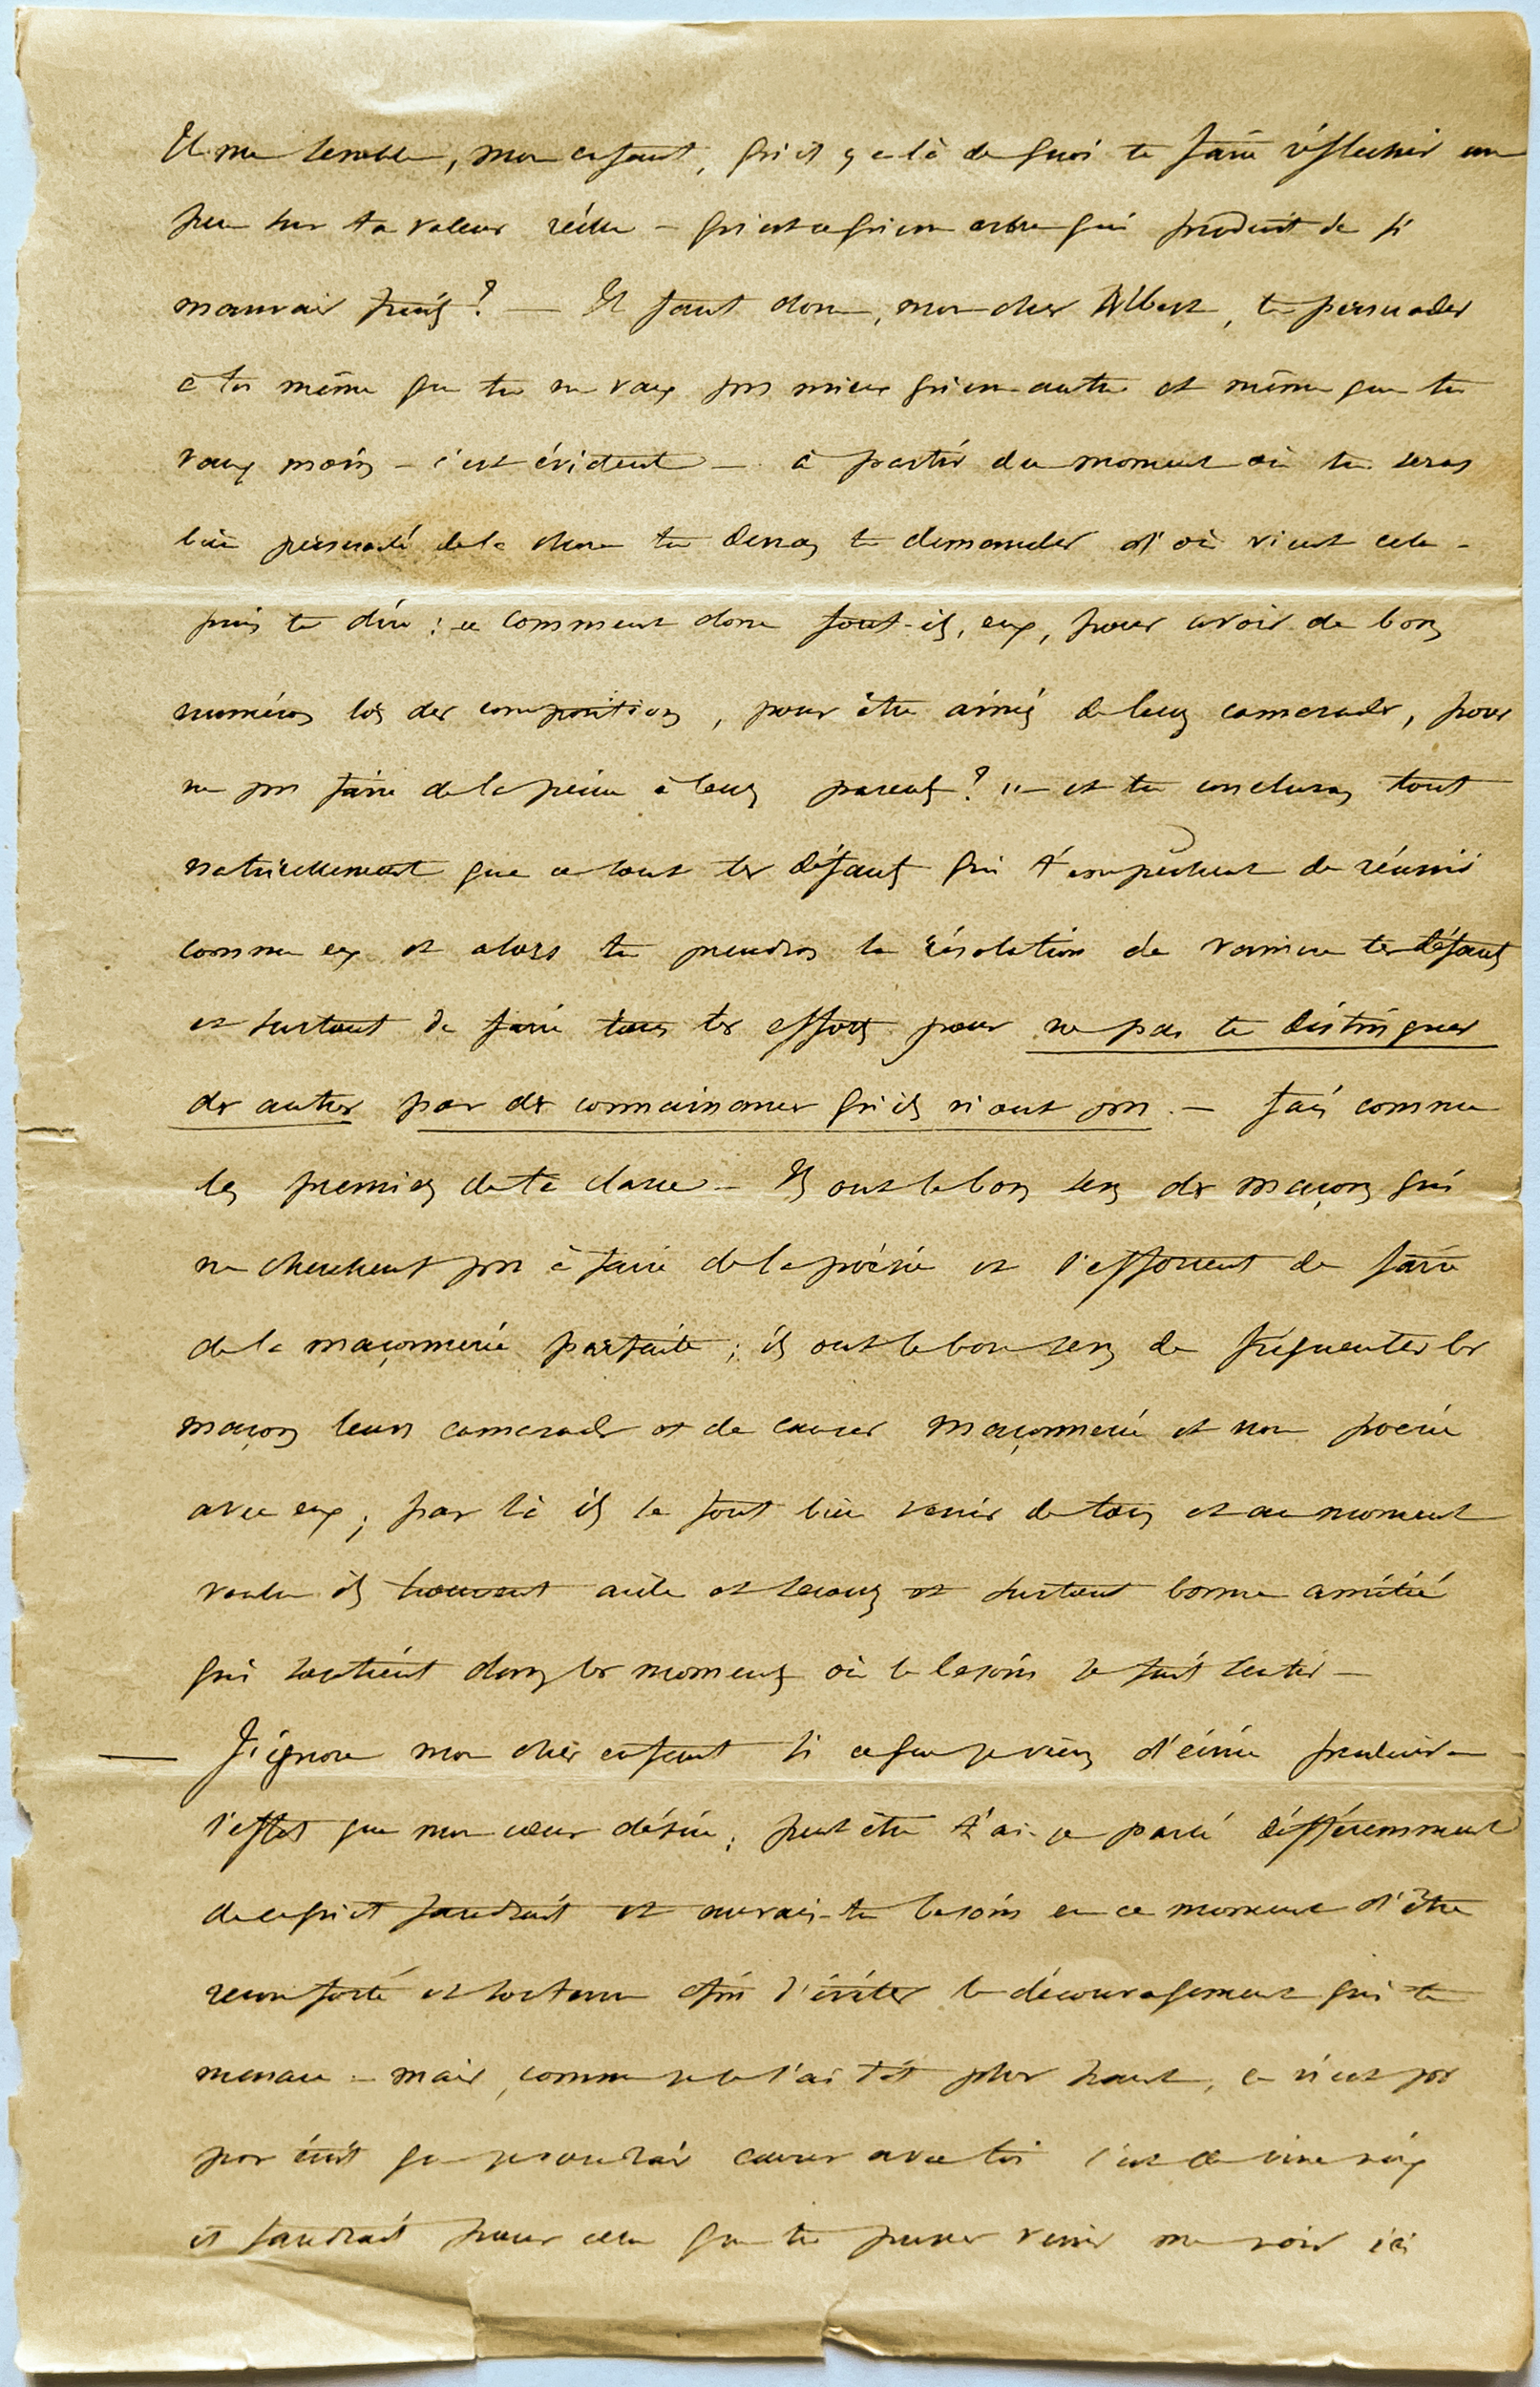 Il me semble, mon enfant, qu'il y a là de quoi te faire réfléchir un
peu sur ta valeur réelle – qu'est ce qu'un arbre qui produit de si
mauvais fruits ? — Il faut donc, mon cher Albert, te persuader
à toi même que tu ne vaux pas mieux qu'un autre et même que tu
vaux moins – c'est évident – à partir du moment où tu seras
bien persuadé de la chose tu devras te demander d'où vient cela –
puis te dire : « comment donc font-ils, eux, pour avoir de bons
numéros lors des compositions, pour être aimés de leurs camarades, pour
ne pas faire de la peine à leurs parents ? » – et tu concluras tout
naturellement que ce sont tes défauts qui t'empêchent de réussir
comme eux et alors tu prendras la résolution de vaincre tes défauts
et surtout de faire tous tes efforts pour ne pas te distinguer
des autres par des connaissances qu'ils n'ont pas. – fais comme
les premiers de ta classe – Ils ont le bon sens des maçons qui
ne cherchent pas à faire de la poésie et s'efforcent de faire
de la maçonnerie parfaite ; ils ont le bon sens de fréquenter les
maçons leurs camarades et de causer maçonnerie et non poésie
avec eux ; par là ils se font bien venir de tous et au moment
voulu ils trouvent aide et secours et surtout bonne amitié
qui soutient dans les moments où le besoin se fait sentir –
— J'ignore mon cher enfant si ce que je viens d'écrire produira
l'effet que mon cœur désire ; peut être t'ai-je parlé différemment
de ce qu'il faudrait et aurais-tu besoin en ce moment d'être
réconforté et soutenu afin d'éviter le découragement qui te
menace – mais, comme je te l'ai dit plus haut, ce n'est pas
par écrit que je voudrais causer avec toi c'est de vive voix
il faudrait pour cela que tu puisses venir me voir ici